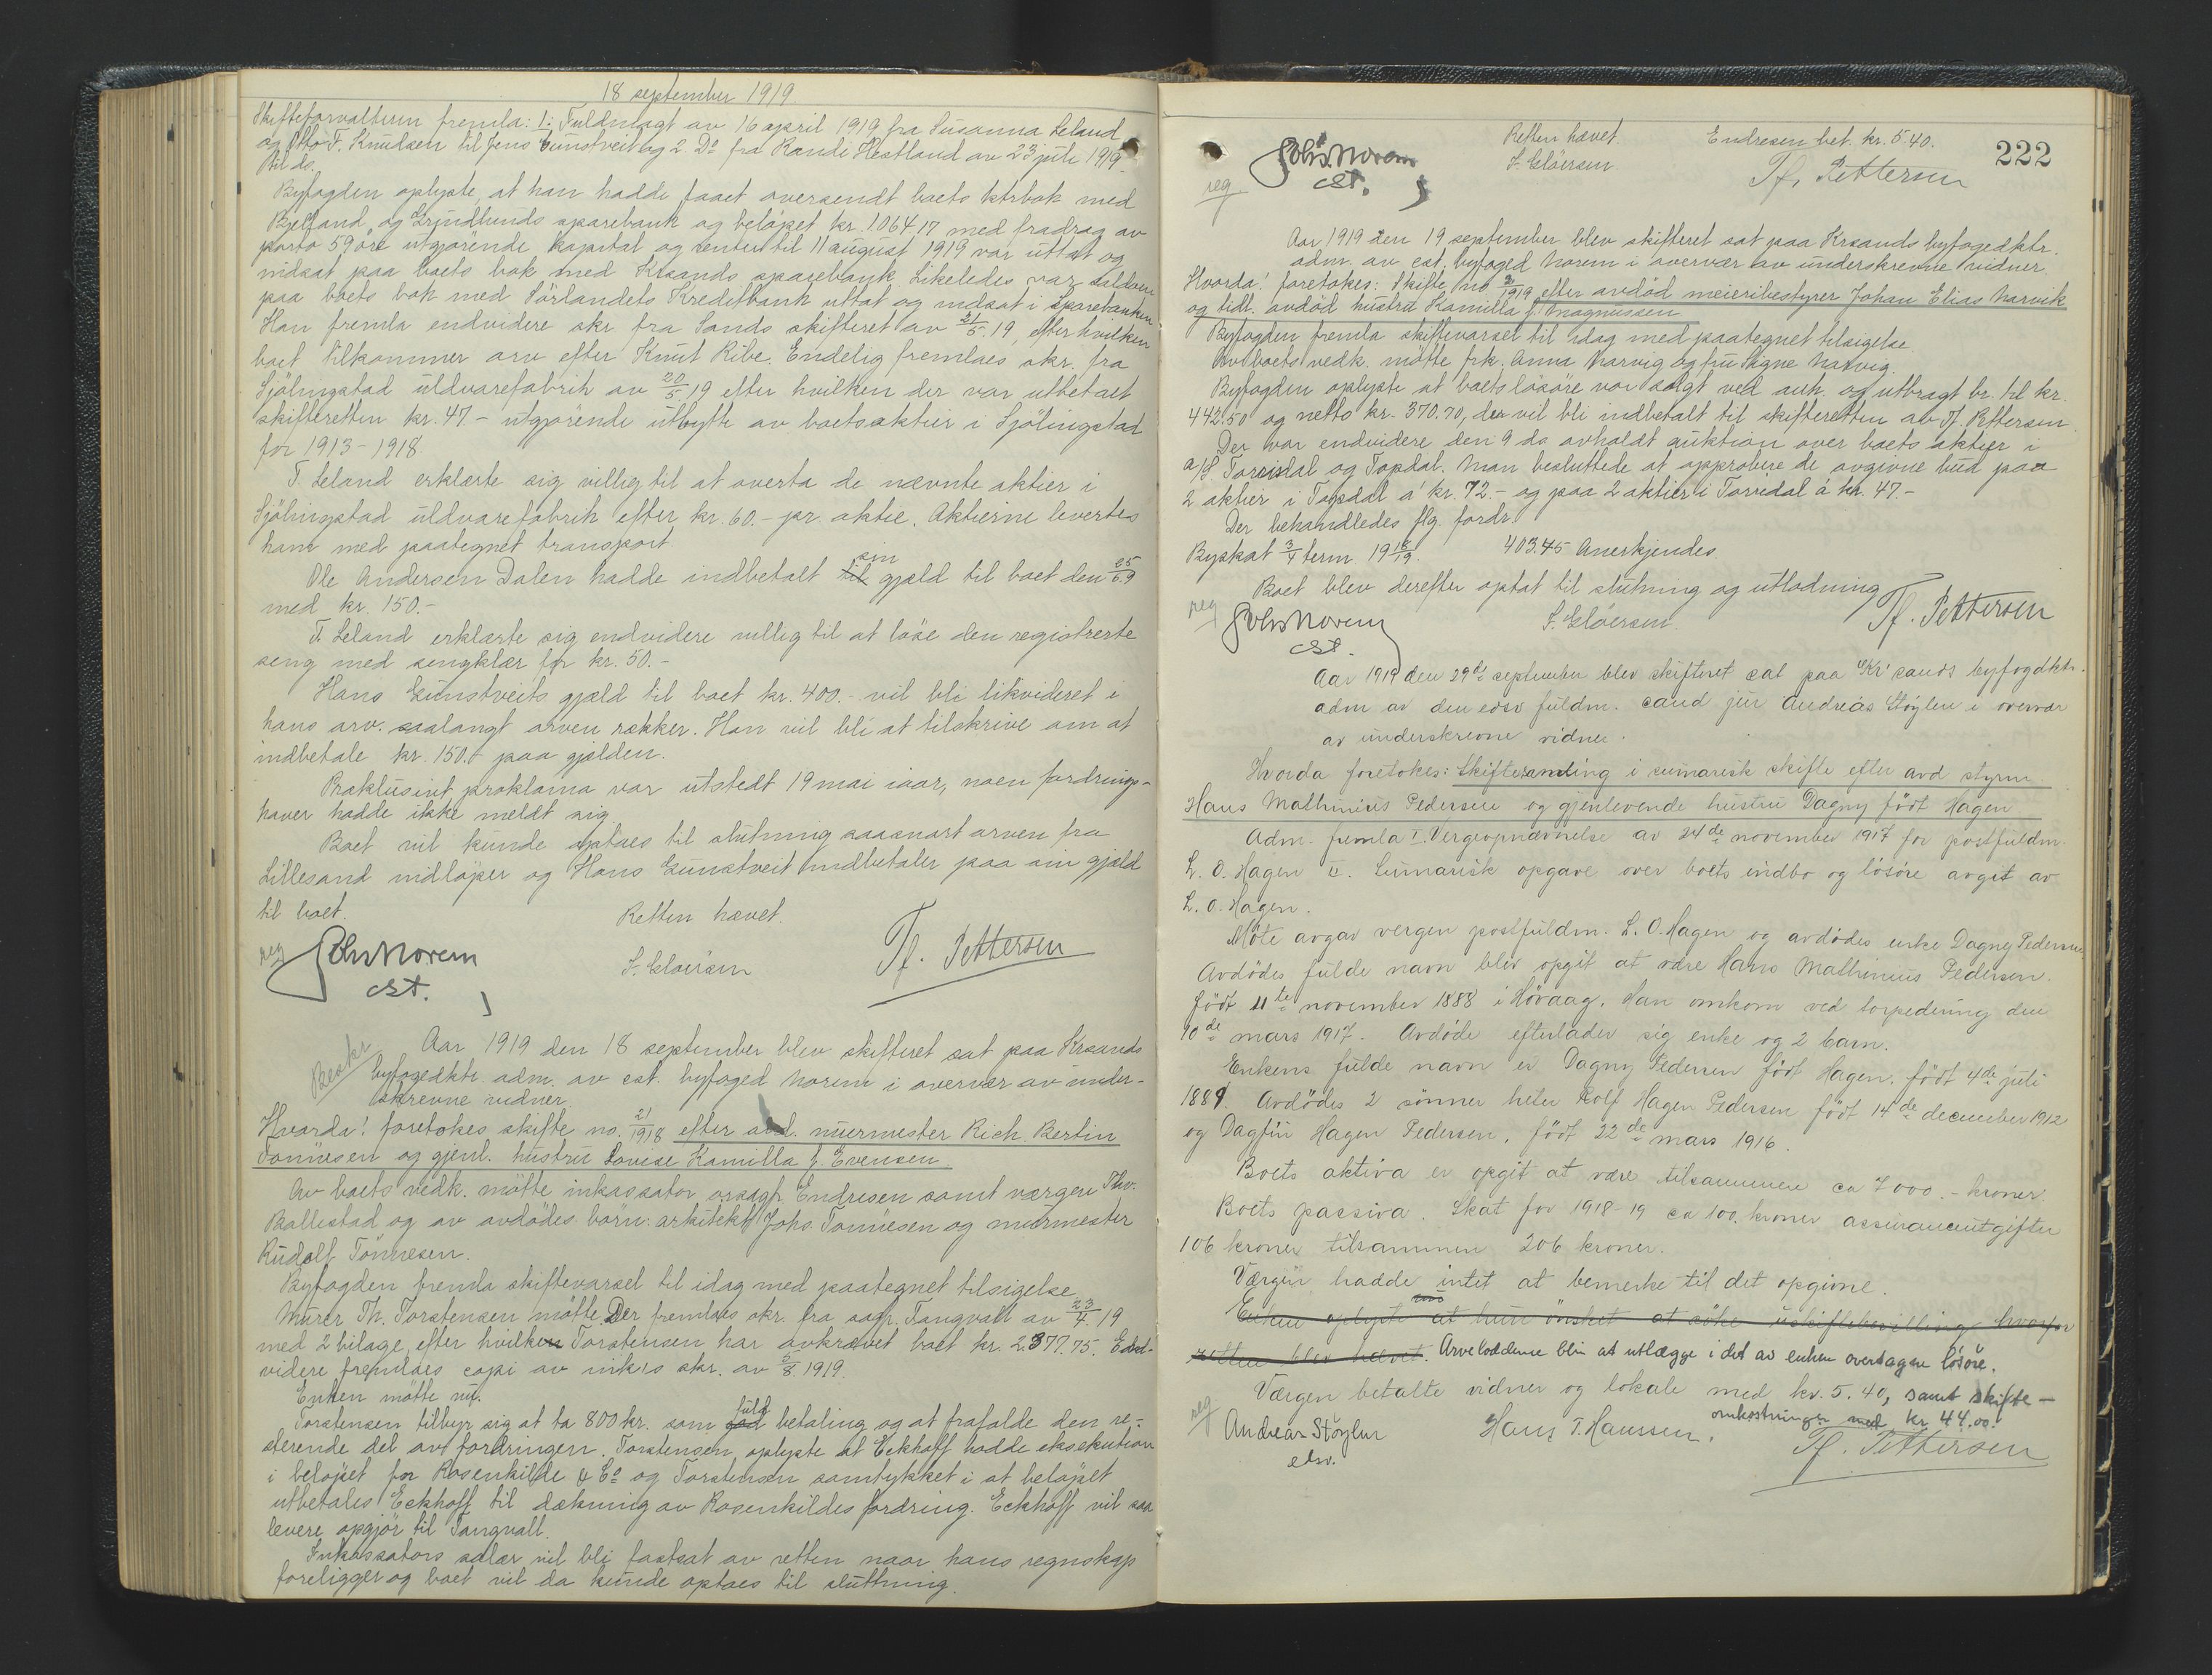 18 september 1919
Skifteforvalteren fremla: 1: Fuldmagt av 16 april 1919 fra Susanna Leland
og Otto F. Knudsen til Jens Eunstveit og 2 Do fra Randi Hestland av 23 juli 1919
til ds.
Byfogden oplyste, at han hadde faaet oversendt boets ktrbok med
Bjelland og Grindheims sparebank og beløpet kr. 1.064 17 med fradrag av
porto 59 øre utgjørende kapital og renter til 11 august 1919 var uttat og
indsat paa boets bok med Krsands sparebank. Likeledes var saldoen
paa boets bok med Sörlandets Kreditbank uttat og indsat i Sparebanken
Han fremla endvidere skr fra Sands skifteret av 21/5.19, efter hvilken
boet tilkommer arv efter Knut Ribe. Endelig fremlaes skr. fra
Sjölingstad uldvarefabrik av 20/5 19 efter hvilken der var utbetalt
skifteretten kr. 47.- utgjørende utbytte av boets aktier i Sjölingstad
for 1913-1918
T. Leland erklærte sig villig til at overta de nævnte aktier i
Sjölingstad uldvarefabrik efter kr. 60.- pr aktie. Aktierne levertes
ham med paategnet transport
Ole Andersen Dalen hadde indbetalt til sin gjæld til boet den 25/6.9
med kr. 150.-
T. Leland erklærte sig endvidere villig til at løse den registrerte
seng med sengklær for kr. 50.-
Hans Eunstveits gjæld til boet kr. 400.- vil bli likvideret i
hans arv. saalangt arven rækker. Han vil bli at tilskrive om at
indbetale kr. 150.- paa gjælden.
Præklusivt proklama var utstedt 19 mai iaar, noen fordrings-
haver hadde ikke meldt sig
Boet vil kunde optaes til slutning saasnart arven fra
Lillesand indløper og Hans Eunstveit indbetaler paa sin gjæld
til boet.
Retten hævet.
reg
Johs Norem
cst.
S. Gloersen
Tf. Pettersen
Beskr
Aar 1919 den 18 september blev skifteret sat paa Krsands
byfogedktr. adm. av cst. byfoged Norem i overvær av under-
skrevne vidner.
Hvorda! foretokes skifte no. 21/1918 efter avd. murmester Rich. Bertin
Tönnesen og gjenl. hustru Lovise Kamilla f. Evensen.
Av boets vedk. møtte inkassator, orsagf. Endresen samt værgen Thv.
Ballestad og av avdödes börn: arkitekt Johs. Tönnesen og murmester
Rudolf Tönnesen.
Byfogden fremla skiftevarsel til idag med paategnet tilsigelse
Murer Th. Torstensen møtte. Der fremlaes skr. fra sagf. Tangvall av 23/7.19
med 2 bilage, efter hvilken Torstensen har avkrævet boet kr. 2.377.75. End-
videre fremlaes copi av inkrs skr. av 5/8.1919.
Enken møtte nu.
Torstensen tilbyr sig at ta 800 kr. som god fuld betaling og at frafalde den re-
sterende del av fordringen. Torstensen oplyste at Eckhoff hadde eksekution
i beløpet for Rosenkilde & Co og Torstensen samtykket i at beløpet
utbetales Eckhoff til dækning av Rosenkildes fordring. Eckhoff vil saa
levere opgjør til Tangvall.
Inkassators salær vil bli fastsat av retten naar hans regnskap
foreligger og boet vil da kunde optaes til sluttning.
222
Retten hævet.
Endresen bet. kr. 5.40.
reg
Johs Norem
cst.
S. Gloersen.
Tf. Pettersen
Aar 1919 den 19 september blev skifteret sat paa Krsands byfogedktr.
adm. av cst. byfoged Norem i overvær av underskrevne vidner
Hvorda! foretokes: Skifte no 2/1919 efter avdöd meieribestyrer Johan Elias Narvik
og tidl. avdöd hustru Kamilla f. Magnussen
Byfogden fremla skiftevarsel til idag med paategnet tilsigelse
Av boets vedk. møtte frk. Anna Narvig og fru Signe Narvig.
Byfogden oplyste at boets løsøre var solgt ved auk. og utbragt br. til kr.
442.50 og netto kr. 370.70, der vil bli indbetalt til skifteretten av Tf. Pettersen.
Der var endvidere den 9 ds avholdt auktion over boets aktier i
a/S Torridal og Topdal. Man besluttede at approbere de avgivne bud paa
2 aktier i Topdal á kr. 72.- og paa 2 aktier i Torridal á kr. 47.-
Der behandledes flg. fordr.
Byskat 3/4 term 1918/19. 403.45 Anerkjendes.
Boet blev derefter optat til slutning og utlodning
reg
Johs Norem
cst.
S. Gloersen.
Tf. Pettersen
Aar 1919 den 29de september blev skifteret sat paa Kr'sands byfogdktr.
adm av den edsv fuldm. cand jur Andreas Støylen i overvær
av underskrevne vidner.
Hvorda foretokes: Skiftesamling i sumarisk skifte efter avd styrm.
Hans Mathinius Pedersen og gjenlevende hustru Dagny født Hagen
Adm. fremla I. Vergeopnævnelse av 24de november 1917 for postfuldm.
L. O. Hagen II. Sumarisk opgave over boets indbo og løsøre avgit av
L. O. Hagen.
Møte avgav vergen postfuldm. L. O. Hagen og avdødes enke Dagny Pedersen
Avdødes fulde navn blev opgit at være Hans Mathinius Pedersen.
født 11te november 1888 i Høvaag. Han omkom ved torpedering den
10de mars 1917. Avdøde efterlader sig enke og 2 barn.
Enkens fulde navn er Dagny Pedersen født Hagen. født 4de juli
1889. Avdødes 2 sønner heter Rolf Hagen Pedersen født 14de december 1912
og Dagfin Hagen Pedersen, født 22de mars 1916.
Boets aktiva er opgit at være tilsammen ca 7000.- kroner.
Boets passiva. Skat for 1918-19 ca 100. kroner assuranceutgifter
106 kroner tilsammen 206 kroner.
Værgen hadde intet at bemerke til det opgivne.
Enken oplyste at hun ønsket at søke uskiftebevilling hvorfor
retten blev hævet. Arveloddene blir at utlægge i det av enken overtagne løsøre.
Værgen betalte vidner og lokale med kr. 5.40, samt skifte-
omkostninger med kr 44.00.
reg
Andreas Støylen
edsv.
Hans T. Hanssen.
Tf. Pettersen